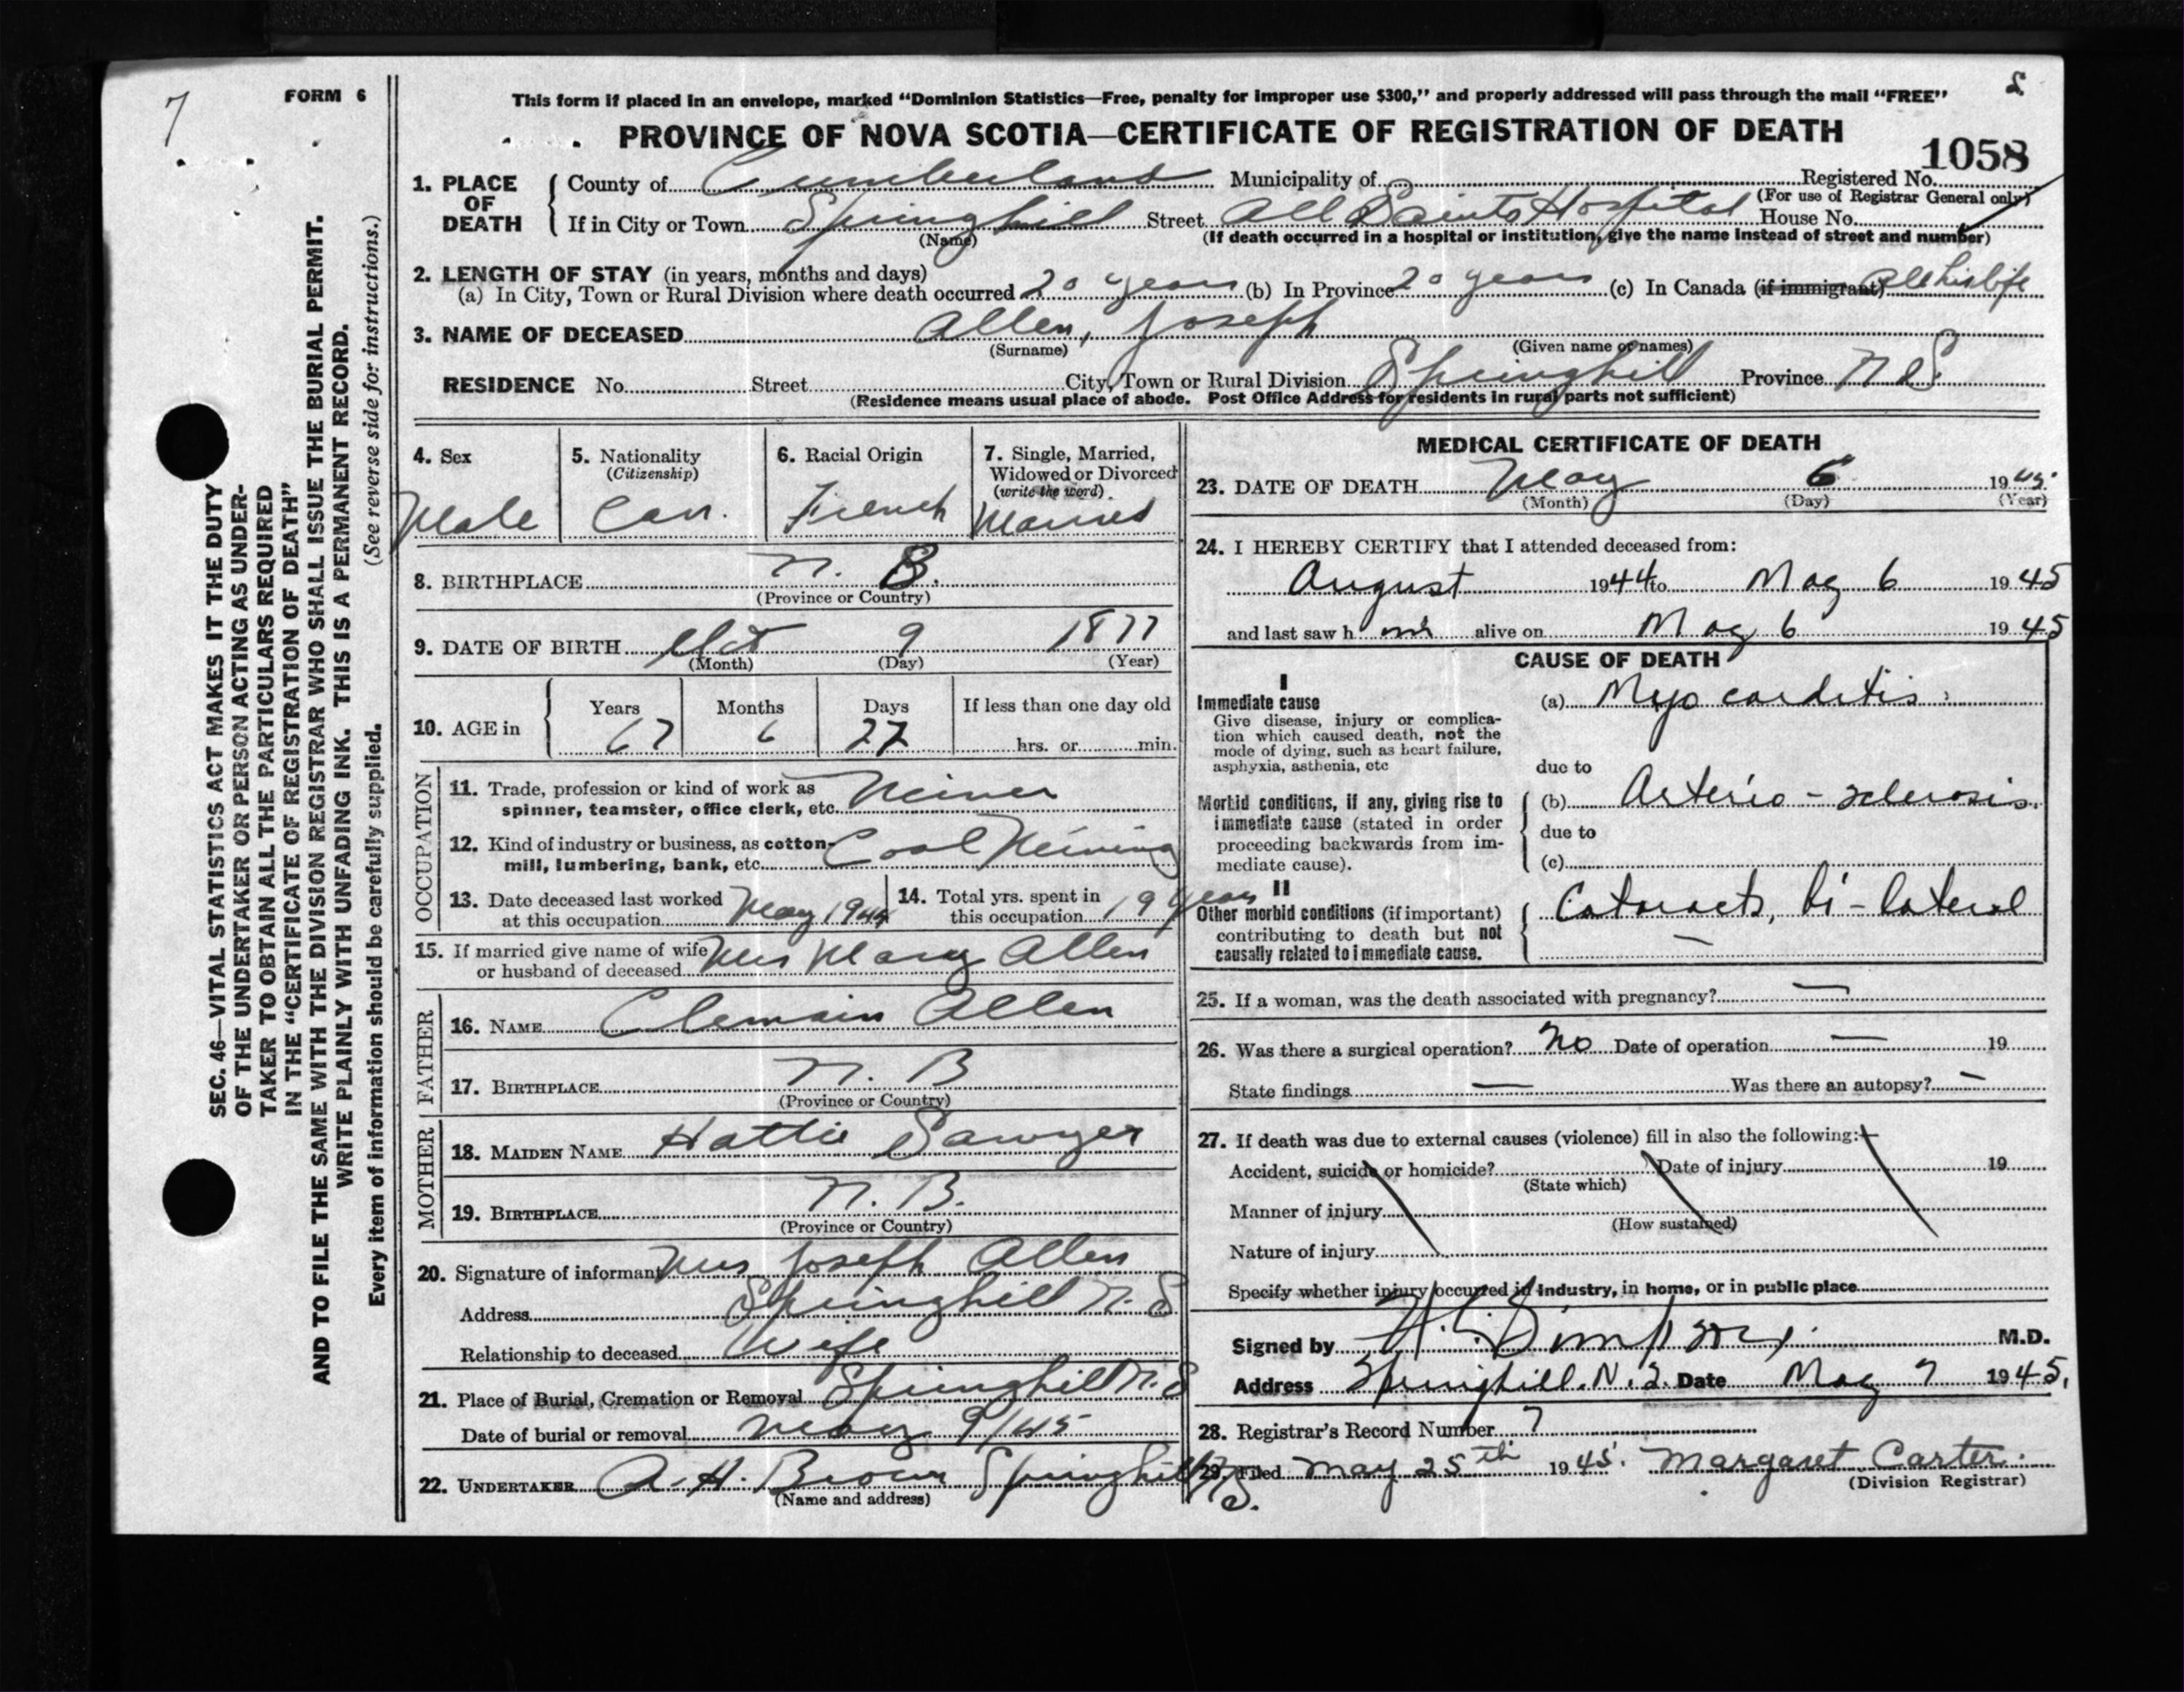 7
FORM 6
2
This form if placed in an envelope, marked “Dominion Statistics—Free, penalty for improper use $300,” and properly addressed will pass through the mail “FREE”
PROVINCE OF NOVA SCOTIA—CERTIFICATE OF REGISTRATION OF DEATH
1058
1. PLACE OF DEATH
County of Cumberland Municipality of Registered No.
(For use of Registrar General only)
If in City or Town Springhill Street All Saints Hospital House No.
(Name) (If death occurred in a hospital or institution, give the name instead of street and number)
2. LENGTH OF STAY (in years, months and days)
(a) In City, Town or Rural Division where death occurred 20 years (b) In Province 20 years (c) In Canada (if immigrant) All his life
3. NAME OF DECEASED Allen, Joseph
(Surname) (Given name or names)
RESIDENCE No. Street City, Town or Rural Division Springhill Province N S.
(Residence means usual place of abode. Post Office Address for residents in rural parts not sufficient)
4. Sex
Male
5. Nationality
(Citizenship)
Can.
6. Racial Origin
French
7. Single, Married,
Widowed or Divorced
(write the word)
Married
8. BIRTHPLACE N. B.
(Province or Country)
9. DATE OF BIRTH Oct 9 1877
(Month) (Day) (Year)
10. AGE in
Years Months Days If less than one day old
67 6 27 hrs. or min.
OCCUPATION
11. Trade, profession or kind of work as
spinner, teamster, office clerk, etc. Miner
12. Kind of industry or business, as cotton-
mill, lumbering, bank, etc. Coal Mining
13. Date deceased last worked
at this occupation May 1944
14. Total yrs. spent in
this occupation 19 years
15. If married give name of wife
or husband of deceased Mrs Mary Allen
FATHER
16. NAME Clemain Allen
17. BIRTHPLACE N. B
(Province or Country)
MOTHER
18. MAIDEN NAME Hattie Sawyer
19. BIRTHPLACE N. B.
(Province or Country)
20. Signature of informant Mrs Joseph Allen
Address Springhill N. S
Relationship to deceased Wife
21. Place of Burial, Cremation or Removal Springhill N. S
Date of burial or removal May 9/45
22. UNDERTAKER A. H. Brown Springhill N.S.
(Name and address)
MEDICAL CERTIFICATE OF DEATH
23. DATE OF DEATH May 6 1945
(Month) (Day) (Year)
24. I HEREBY CERTIFY that I attended deceased from:
August 1944 to May 6 1945
and last saw h im alive on May 6 1945
CAUSE OF DEATH
I
Immediate cause
Give disease, injury or complica-
tion which caused death, not the
mode of dying, such as heart failure,
asphyxia, asthenia, etc
(a) Myocarditis
due to
Morbid conditions, if any, giving rise to
immediate cause (stated in order
proceeding backwards from im-
mediate cause).
(b) Arterio-sclerosis.
due to
(c)
II
Other morbid conditions (if important)
contributing to death but not
causally related to immediate cause.
Cataracts, bi-lateral
—
25. If a woman, was the death associated with pregnancy? —
26. Was there a surgical operation? No Date of operation — 19
State findings — Was there an autopsy? —
27. If death was due to external causes (violence) fill in also the following:—
Accident, suicide or homicide? Date of injury 19
(State which)
Manner of injury
(How sustained)
Nature of injury
Specify whether injury occurred in industry, in home, or in public place
Signed by Simpson M.D.
Address Springhill. N.S. Date May 7 1945.
28. Registrar's Record Number 7
29. Filed May 25th 1945. Margaret Carter.
(Division Registrar)
SEC. 46—VITAL STATISTICS ACT MAKES IT THE DUTY
OF THE UNDERTAKER OR PERSON ACTING AS UNDER-
TAKER TO OBTAIN ALL THE PARTICULARS REQUIRED
IN THE “CERTIFICATE OF REGISTRATION OF DEATH”
AND TO FILE THE SAME WITH THE DIVISION REGISTRAR WHO SHALL ISSUE THE BURIAL PERMIT.
WRITE PLAINLY WITH UNFADING INK. THIS IS A PERMANENT RECORD.
Every item of information should be carefully supplied. (See reverse side for instructions.)